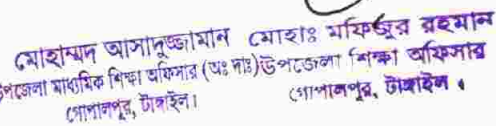 মোহাম্মদ আসাদুজ্জামান
উপজেলা মাধ্যমিক শিক্ষা অফিসার (অঃ দাঃ)
গোপালপুর, টাঙ্গাইল।
মোহাঃ মফিজুর রহমান
উপজেলা শিক্ষা অফিসার
গোপালপুর, টাঙ্গাইল।